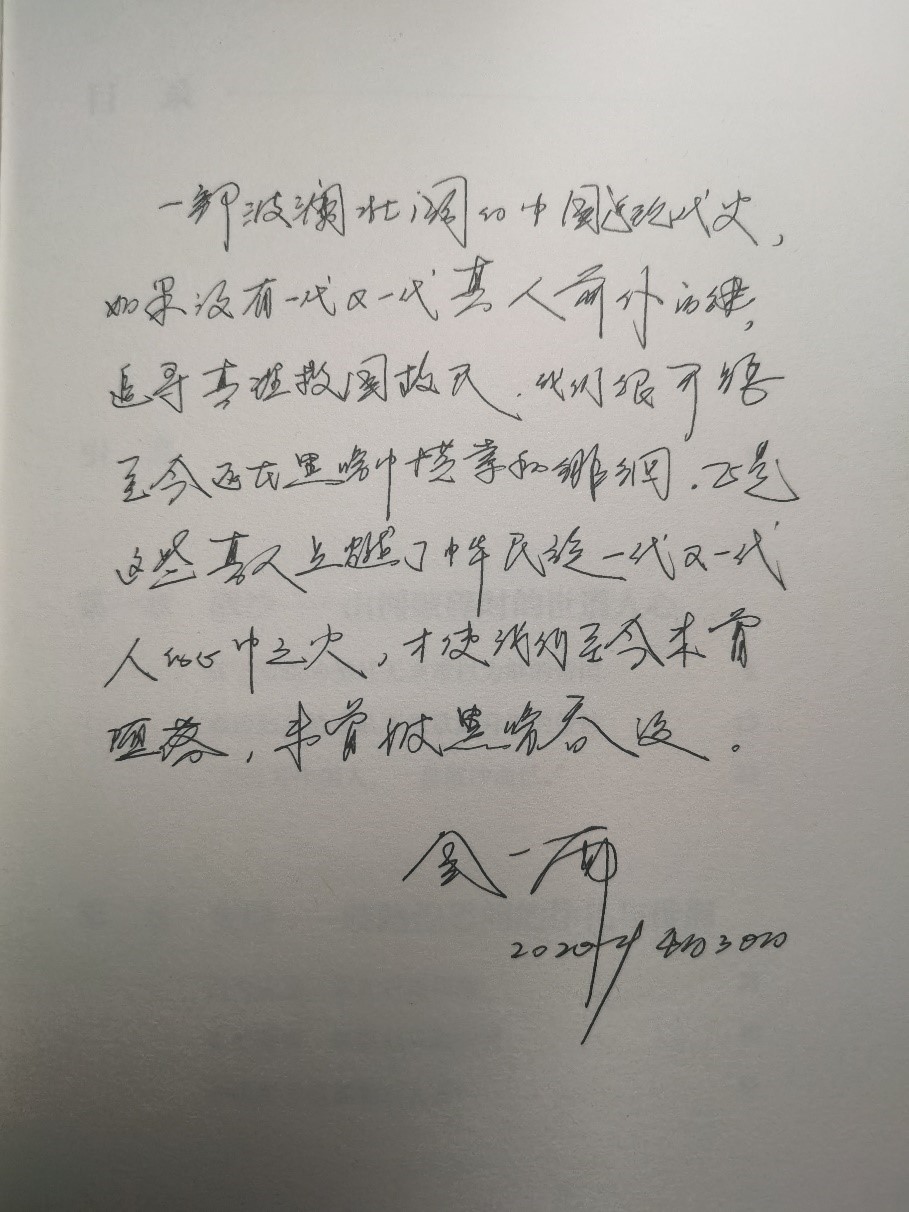 一部波澜壮阔的中国近现代史，
如果没有一代又一代真人前仆后继，
追寻真理救国救民，我们很可能
至今还在黑暗中摸索和徘徊。正是
这些真人点燃了中华民族一代又一代
人的心中之火，才使我们至今未曾
堕落，未曾被黑暗吞没。
金一南
2020年4月30日